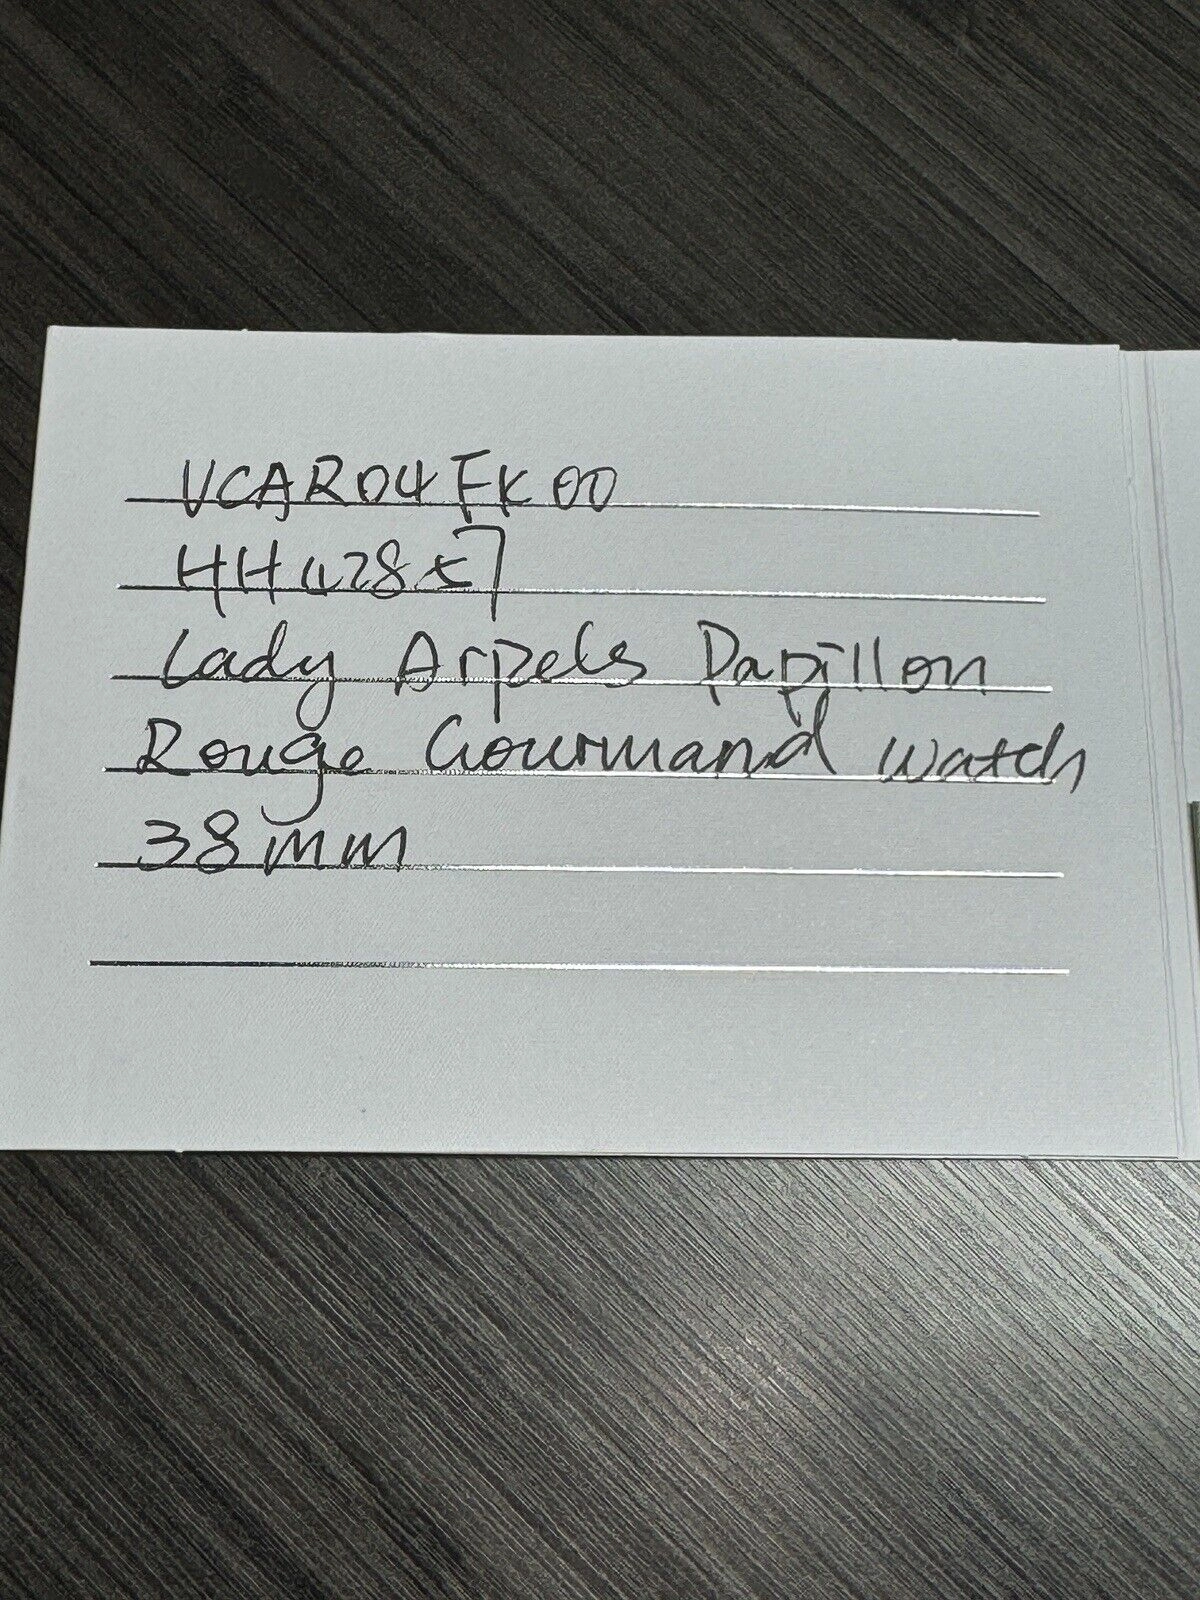 VCARO4FK00
HH42857
Lady Arpels Papillon
Rouge Gourmand watch
38mm